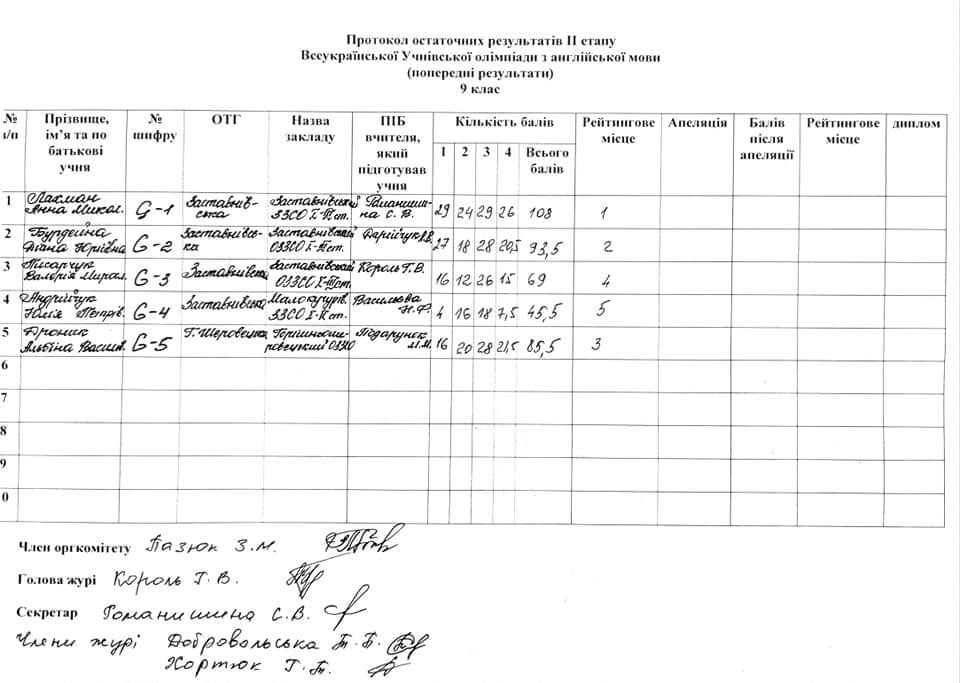 Протокол остаточних результатів ІІ етапу
Всеукраїнської Учнівської олімпіади з англійської мови
(попередні результати)
9 клас
№ з/п Прізвище, ім’я та по батькові учня № шифру ОТГ Назва закладу ПІБ вчителя, який підготував учня Кількість балів 1 2 3 4 Всього балів Рейтингове місце Апеляція Балів після апеляції Рейтингове місце диплом
1 Лахман Анна Микол. G-1 Заставнівська Заставнівський ЗЗСО І-ІІІ ст. Романишина С. В. 29 24 29 26 108 1
2 Бурдейна Діана Юріївна G-2 Заставнівська Заставнівський ОЗЗСО І-ІІІ ст. 27 18 28 20,5 93,5 2
3 Писарчук Валерія G-3 Заставнівська Заставнівський ОЗЗСО І-ІІІ ст. Король Г. В. 16 12 26 15 69 4
4 Андрійчук Юлія Петрів. G-4 Заставнівська ЗЗСО І-ІІ ст. Васильєва Н.Ф. 4 16 18 7,5 45,5 5
5 Дроник Альбіна Васил. G-5 ОЗЗСО Подарунек М.М. 16 20 28 21,5 85,5 3
6
7
8
9
0
Член оргкомітету Пазюк З.М.
Голова журі Король Г. В.
Секретар Романишина С.В.
Члени журі Добровольська Т. Б.
Хортюк Г.